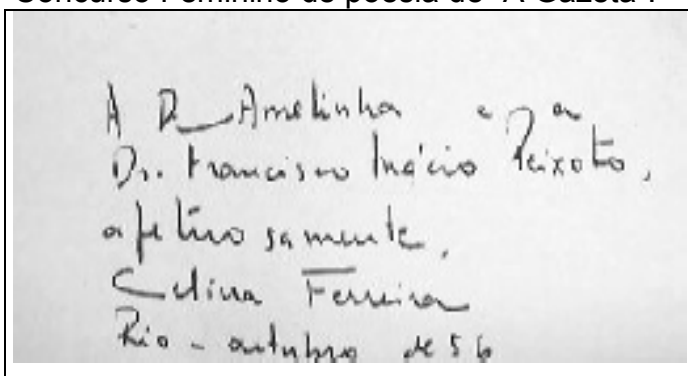 Concurso Feminino de poesia de "A Gazeta".
A D. Amelinha e a
Dr. Francisco Inácio Peixoto,
afetuosamente,
Celina Ferreira
Rio - outubro de 56